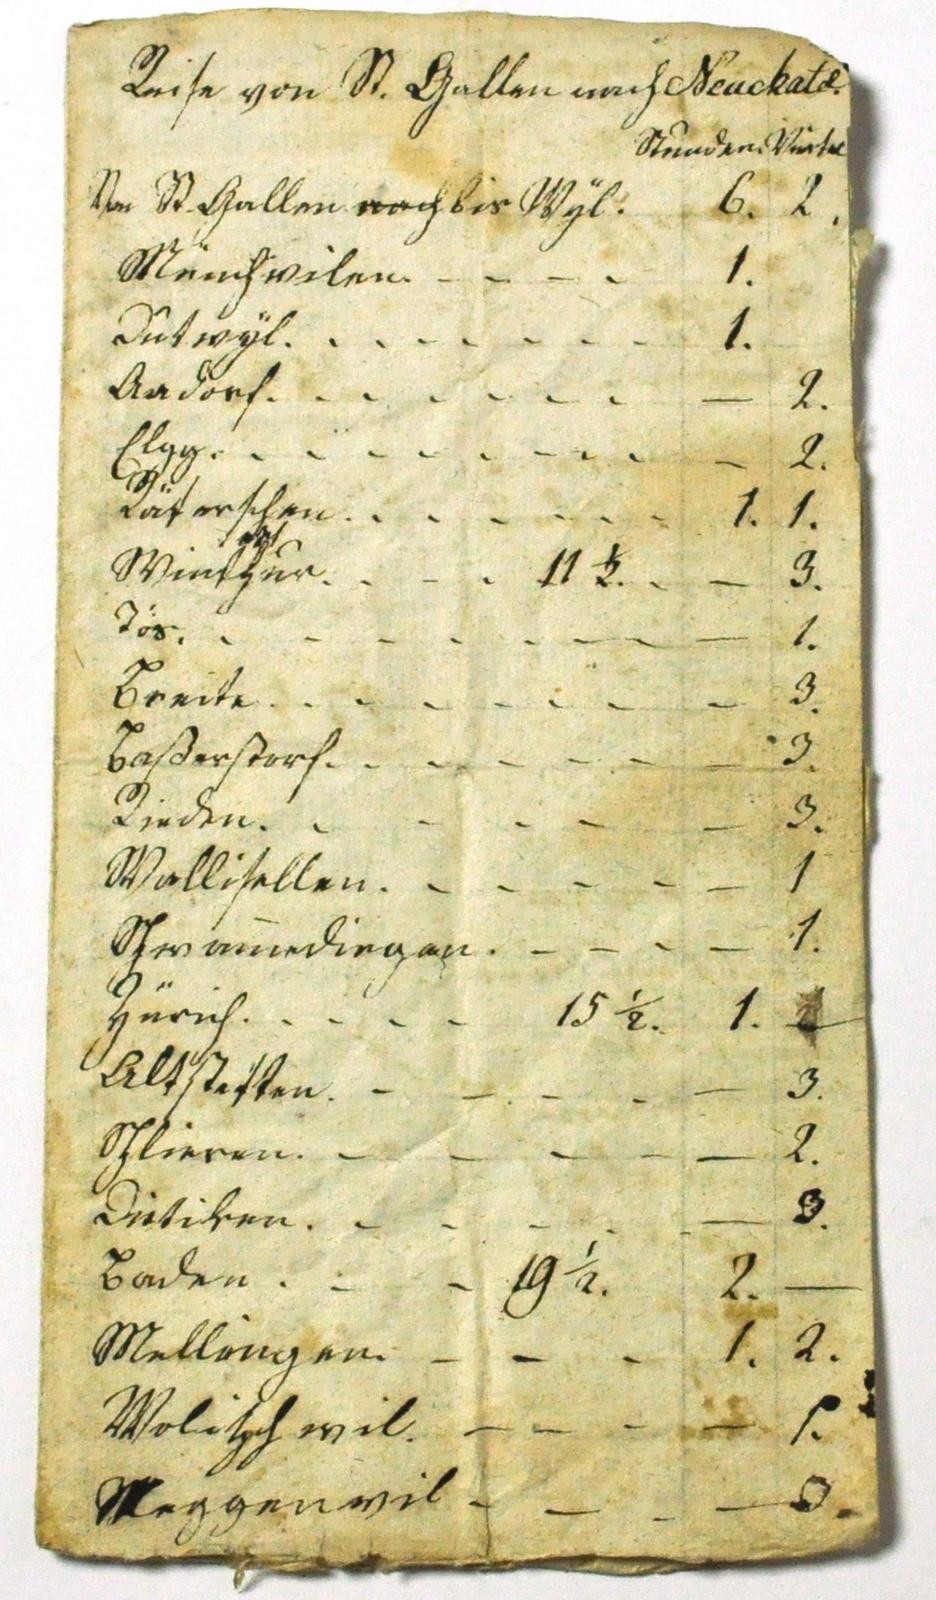 Reise von St. Gallen nach Neuchatel.
Stunden. Viertel
Von St. Gallen nach bis Wyl. 6. 2.
Münchwilen. - - - - 1.
Dutwÿl. - - - - - - - 1.
Aadorf. - - - - - - - — 2.
Elgg. - - - - - - - - 2.
Räterschen. - - - - - - 1. 1.
Winthur. - - - 11 ½. - — 3.
Tös. - - - - - - - - — 1.
Breite. - - - - - - - - 3.
Baßerstorf. - - - - - - - 3.
Rieden. - - - - - 3.
Wallisellen. - - - - - — 1
Schwam̄edingen. - - - - — 1.
Zürich. - - - - 15 ½. 1. —
Altstetten. - - - - — 3.
Schlieren. - - - - - — 2.
Dietiken. - - - - - — 3.
Baden. - - 19 ½. 2. —
Mellingen. - - - 1. 2.
Wolitschwil. - - - - — 1.
Meggenwil - - - — 3.